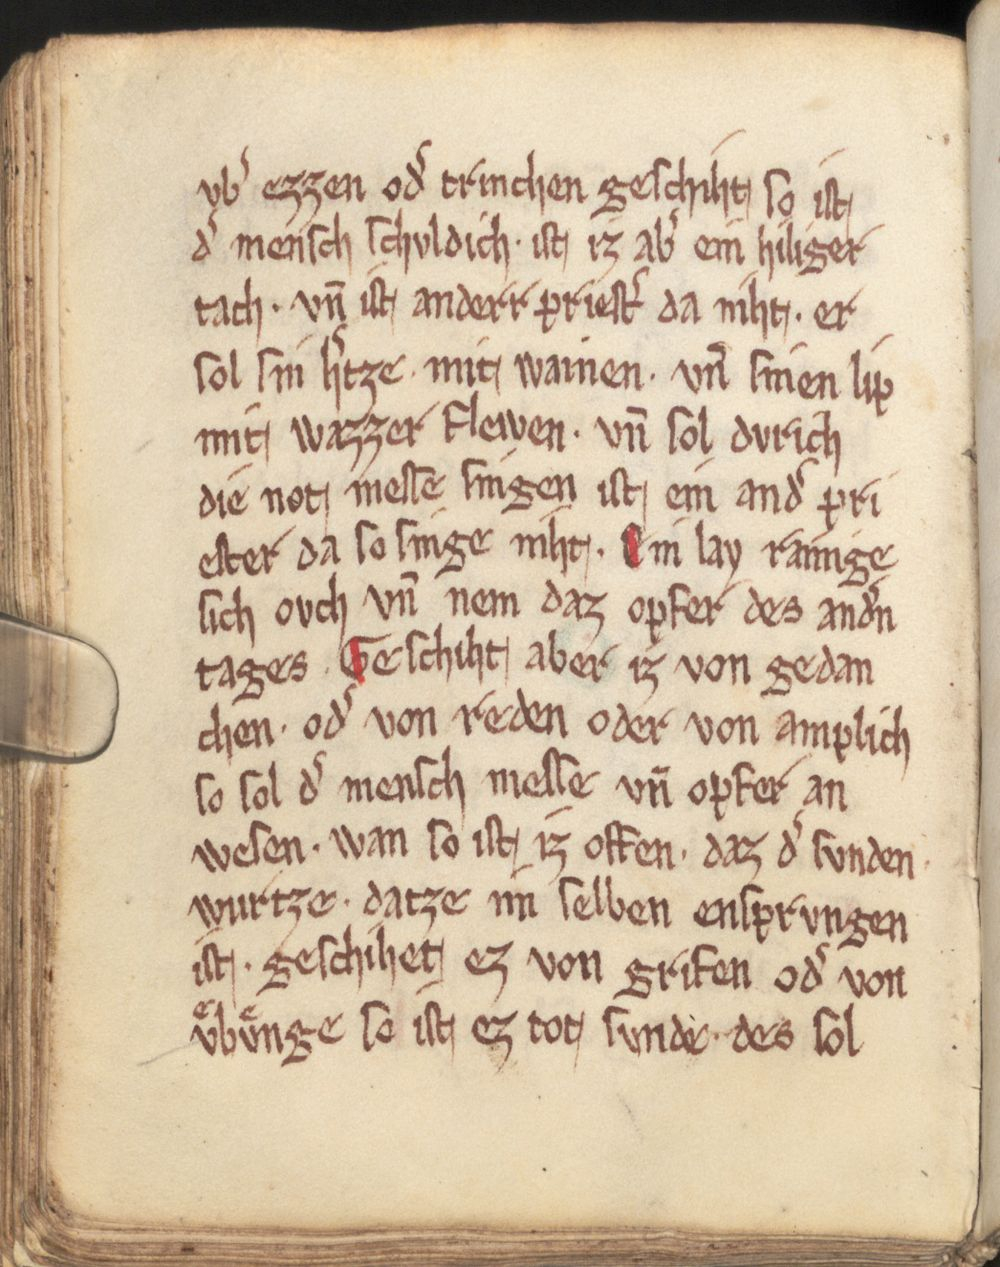 vb͛ ezzen od͛ trinchen geschiht so ist
d͛ mensch schvldich · ist iz ab͛ ein hiliger
tach · vn̄ ist anderr priest͛ da niht · er
sol sin h͛tze · mit wainen · vn̄ sinen lip
mit wazzer flewen · vn̄ sol dvrich
die not messe singen ist ein and͛ pri
ester da so singe niht · Ein lay rainige
sich ovch vn̄ nem daz opfer des and͛n
tages · Geschiht aber iz von gedan
chen · od͛ von reden oder von amplich
so sol d͛ mensch messe vn̄ opfer an
wesen · wan so ist iz offen · daz d͛ svnden
wurtze · datze im selben ensprvngen
ist · geschihet ez von grifen od͛ von
vͤbvͤnge so ist ez tot svnde · des sol